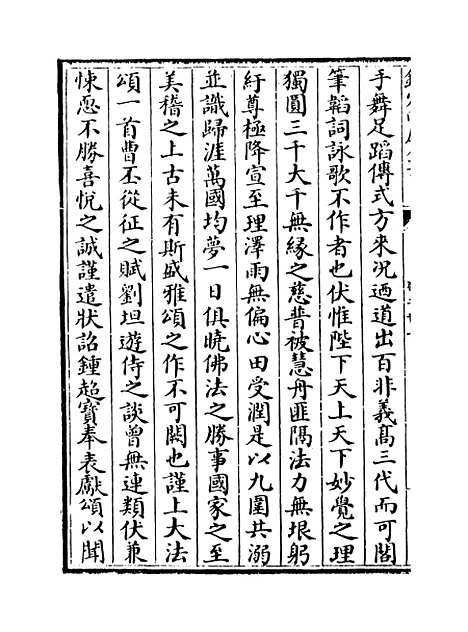 手舞足蹈傳式方來况迺道出百非義髙三代而可閣
筆韜詞詠歌不作者也伏惟陛下天上天下妙覺之理
獨圓三千大千無縁之慈普被慧舟匪隔法力無垠躬
紆尊極降宣至理澤雨無偏心田受潤是以九圍共溺
並識歸涯萬國均夢一日俱曉佛法之勝事國家之至
美稽之上古未有斯盛雅頌之作不可闕也謹上大法
頌一首曹丕從征之賦劉坦遊侍之談曾無連類伏兼
悚恧不勝喜悅之誠謹遣狀詔鍾超寳奉表獻頌以聞